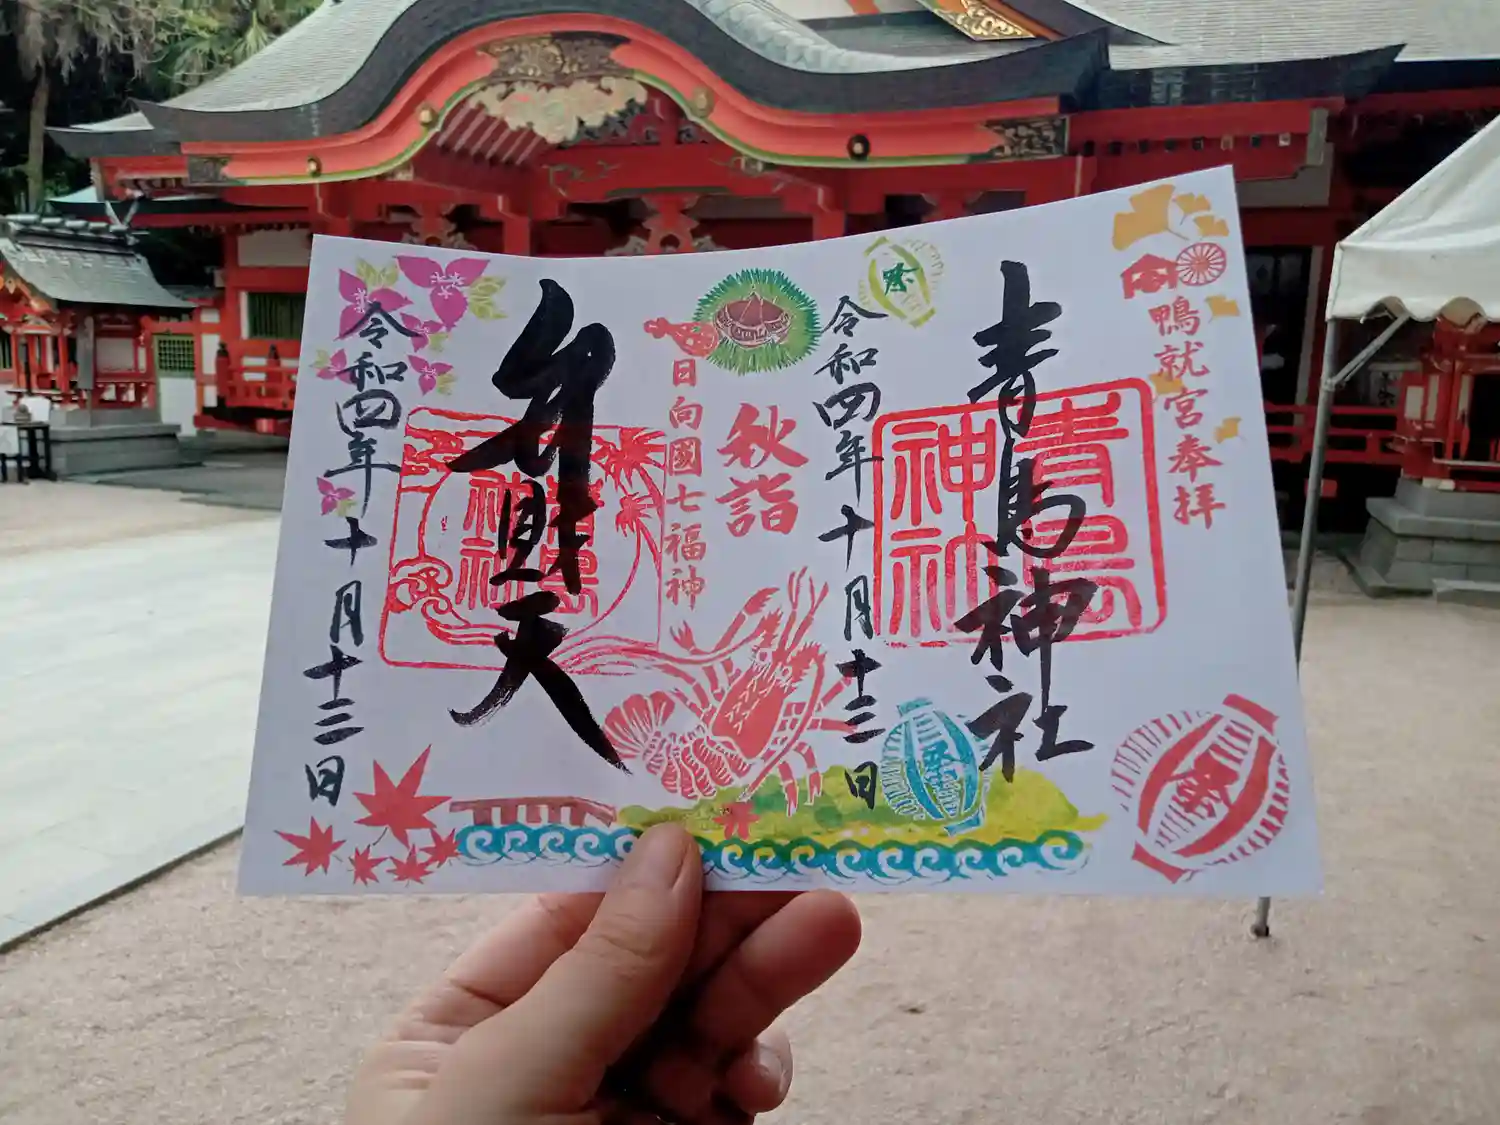 鴨就宮奉拝
青島神社
青島神社
祭
令和四年十月十三日
祭
祭
秋詣
日向國七福神
弁財天
青島神社
令和四年十月十三日